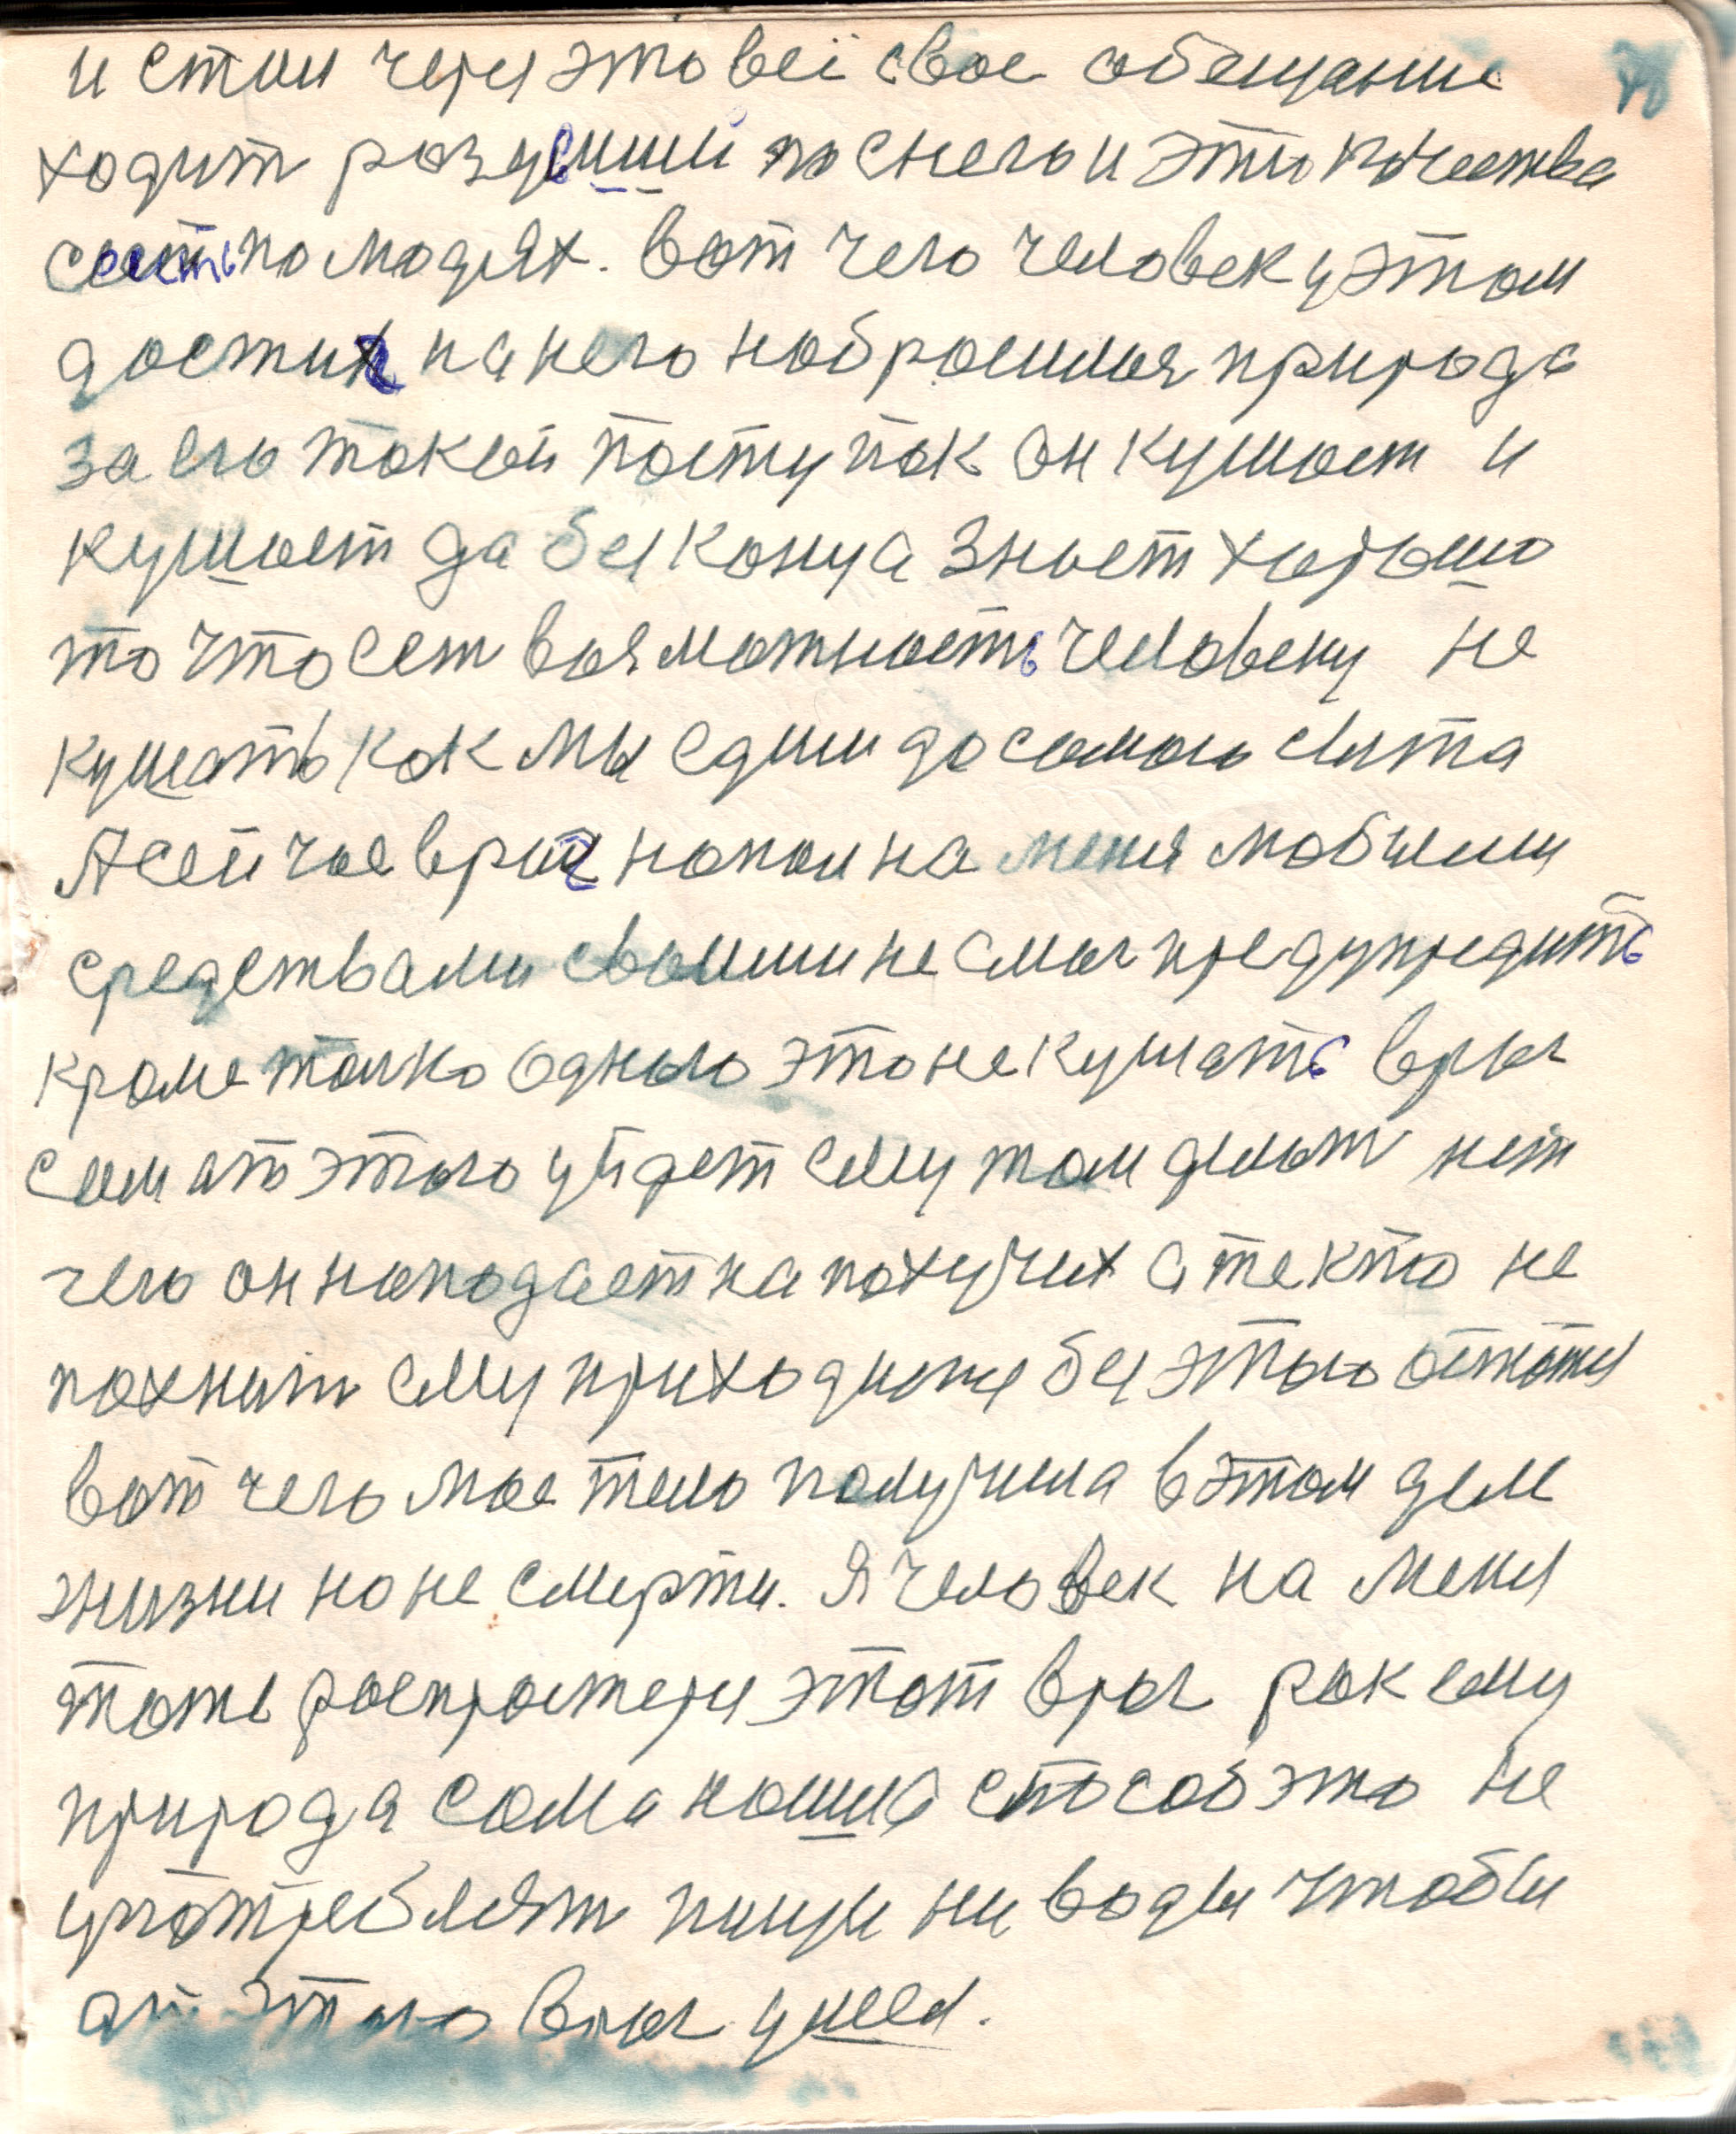 и стал через это всё свое обещание
ходит розувшии по снегу и это качества
сеить по людях. Вот чего человек у этом
достиг на него набросилася природа
за его такой поступок Он кушает и
кушает да без конца Знает хорошо
то что ест возможность человеку не
кушать как мы едим до самого сыта
А сейчас враг напал на меня любыми
средствами своими не смог предупредить
кроме толко одного это не кушать враг
сам от этого уйдет ему там делат нет
чего он нападает на пахучих а те кто не
пахнит ему приходится без этого остатся
вот чего мое тело получила в этом деле
жизни но не смерти. Я человек на меня
тоже распростерся этот враг рак ему
природа сама нашла способ это не
употреблят пищи ни воды чтобы
от этого враг ушел.